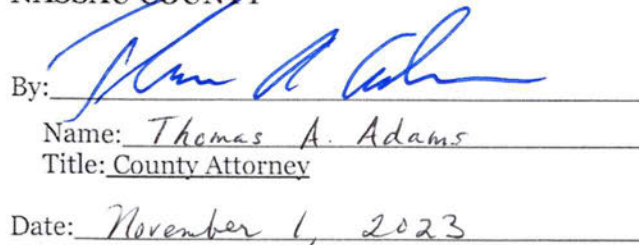 NASSAU COUNTY
By:
Name: Thomas A. Adams
Title: County Attorney
Date: November 1, 2023